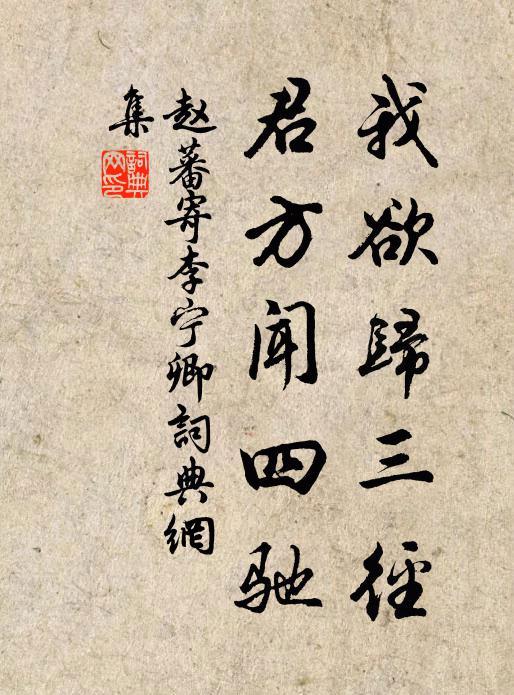 我欲歸三徑
君方闻四驰
赵蕃寄李宁卿詞典網
集
詞典网印